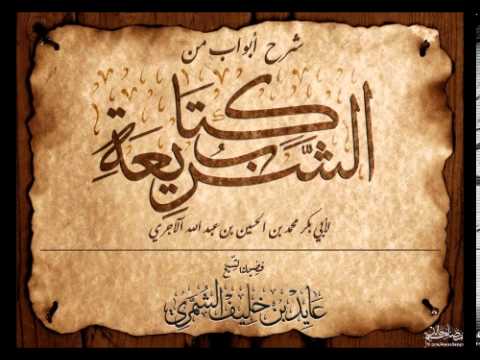 شرح أبواب من
كتاب
الشريعة
لأبي بكر محمد بن الحسين بن عبد الله الآجري
فضيلة الشيخ
عايد بن خليف الشمري